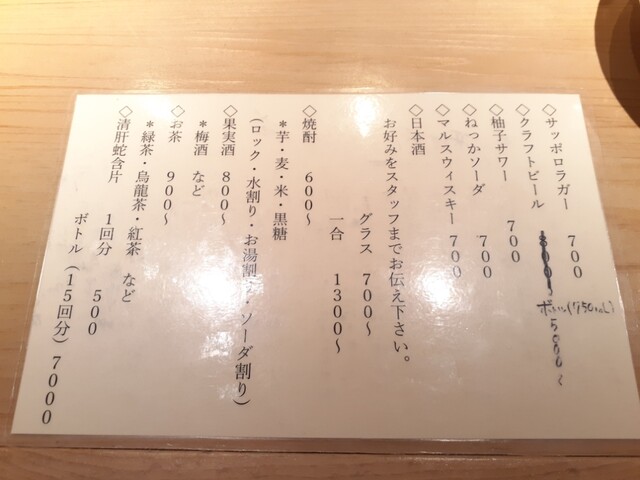 ◇サッポロラガー 700
◇クラフトビール ボトル(750mL) 5000〜
◇柚子サワー 700
◇ねっかソーダ 700
◇マルスウィスキー 700
◇日本酒
お好みをスタッフまでお伝え下さい。
グラス 700〜
一合 1300〜
◇焼酎 600〜
*芋・麦・米・黒糖
(ロック・水割り・お湯割り・ソーダ割り)
◇果実酒 800〜
*梅酒 など
◇お茶 900〜
*緑茶・烏龍茶・紅茶 など
◇清肝蛇含片
1回分 500
ボトル(15回分)7000